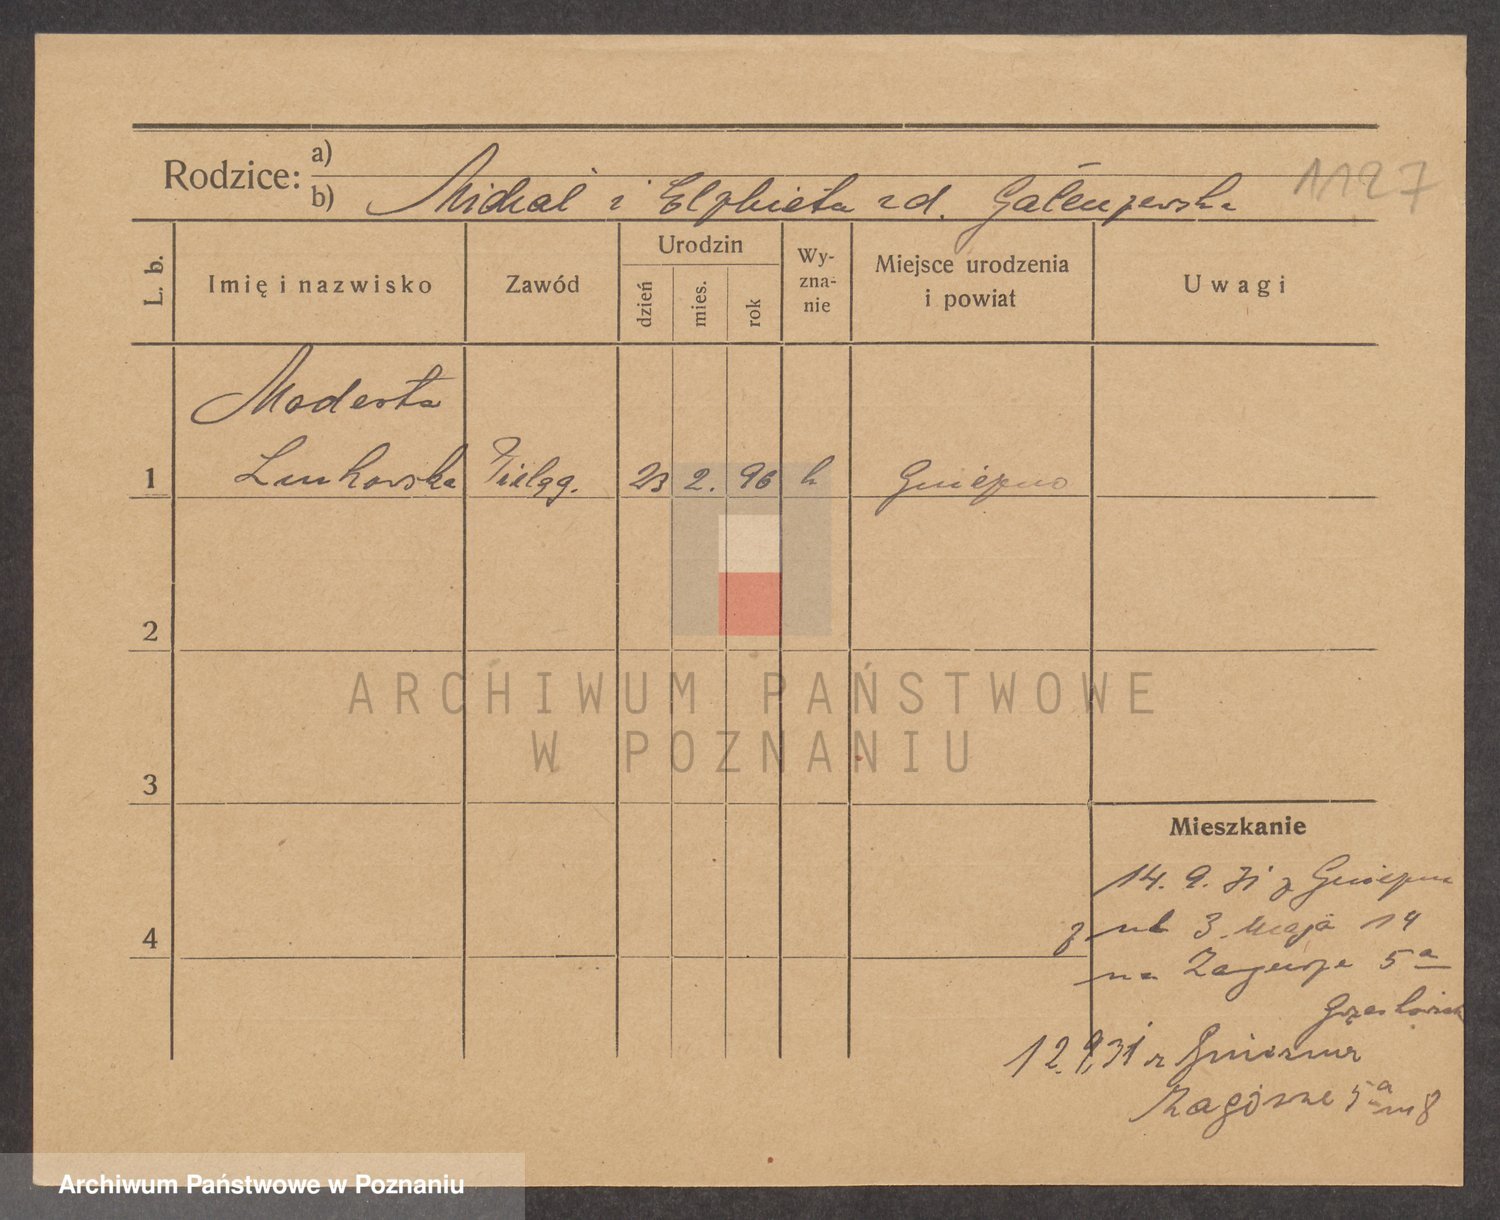 Rodzice:
a)
b) Michał i Elżbieta zd. Gałenzewska
1127
L. b.
Imię i nazwisko
Zawód
Urodzin
dzień
mies.
rok
Wy-
zna-
nie
Miejsce urodzenia
i powiat
Uwagi
Modesta
1 Lenkowska Pielęg. 23 2. 96 k Gniezno
2
ARCHIWUM PAŃSTWOWE
W POZNANIU
3
Mieszkanie
14. 9. 31 z Gniezna
4
z ul 3. Maja 14
na Zagórze 5a
12.9.31 z Gniezna
Zagórze 5a m 8
Archiwum Państwowe w Poznaniu